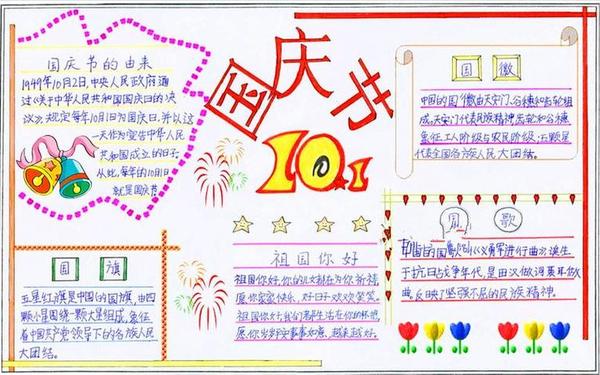 国庆节
10.1
国庆节的由来
1949年10月2日,中央人民政府通
过《关于中华人民共和国国庆日的决
议》,规定每年10月1日为国庆日,并以这
一天作为宣告中华人民
共和国成立的日子.
从此,每年的10月1日
就是国庆节.
国徽
中国的国徽由天安门、谷穗和齿轮组
成,天安门代表民族精神,齿轮和谷穗
象征工人阶级与农民阶级,五颗星
代表全国各族人民大团结。
国旗
五星红旗是中国的国旗,由四
颗小星围绕一颗大星组成,象征
着中国共产党领导下的各族人民
大团结。
祖国你好
祖国你好,你的儿女都在为你祈福,
愿你家家快乐,好日子欢欢笑笑。
祖国你好,我们都生活在你的怀抱,
愿你岁岁平安事事如意,越来越好。
国歌
中国的国歌《义勇军进行曲》诞生
于抗日战争年代,是田汉做词聂耳做
曲,反映了坚强不屈的民族精神。